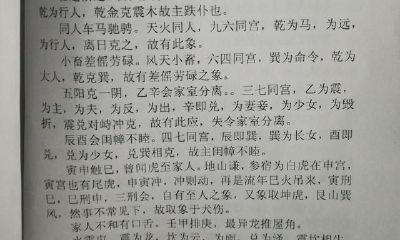 为行人，乾金克震木故主跌仆也。
同人车马驰骋。天火同人，九六同宫，乾为马，为远，
为行人，离日克之，故有此象。
小畜差徭劳碌。风天小畜，六四同宫，巽为命令，乾为
大人，乾克巽，故有差徭劳碌之象。
五阳克一阴，乙辛会家室分离。三七同宫，乙为震，
为主，为夫，为反，为出，辛即兑，为妻妾，为少女，为毁
折，震兑对峙冲克，故有此应，失令家室分离。
辰酉会闺帏不睦。四七同宫，辰即巽，巽为长女，酉即
兑，兑为少女，兑巽相克，故主闺帏不睦。
寅申触巳，曾闻虎至家人。地山谦，参宿为白虎在申宫，
寅宫也有尾虎，申寅冲，冲则动，再是流年巳火吊来，寅刑
巳，巳刑申，三刑会，自有至人之象，又象取坤虎，艮山巽
风，然事不常见下，故取象于犬伤。
家人不和有口舌。壬甲排庚，最异龙推屋角。